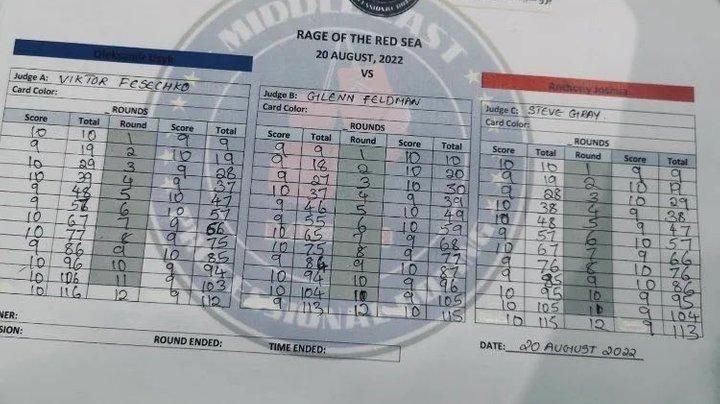 MIDDLE EAST
PROFESSIONAL BOXING
RAGE OF THE RED SEA
20 AUGUST, 2022
VS
Oleksandr Usyk
Judge A: VIKTOR FESECHKO
Card Color:
_ROUNDS
Score Total Round Score Total
10 10 1 9 9
9 19 2 10 19
10 29 3 9 28
10 39 4 9 37
9 48 5 10 47
9 57 6 10 57
10 67 7 9 66
10 77 8 9 75
9 86 9 10 85
10 96 10 9 94
10 106 11 9 103
10 116 12 9 112
Judge B: GLENN FELDMAN
Card Color:
_ROUNDS
Score Total Round Score Total
9 9 1 10 10
9 18 2 10 20
9 27 3 10 30
10 37 4 9 39
9 46 5 10 49
9 55 6 10 59
10 65 7 9 68
10 75 8 9 77
9 84 9 10 87
10 94 10 9 96
10 104 11 9 105
9 113 12 10 115
Anthony Joshua
Judge C: STEVE GRAY.
Card Color:
_ROUNDS
Score Total Round Score Total
10 10 1 9 9
9 19 2 10 19
9 28 3 10 29
10 38 4 9 38
10 48 5 9 47
9 57 6 10 57
10 67 7 9 66
9 76 8 10 76
9 85 9 10 86
10 95 10 9 95
10 105 11 9 104
10 115 12 9 113
NER:
SION: ROUND ENDED: TIME ENDED:
DATE: 20 AUGUST 2022